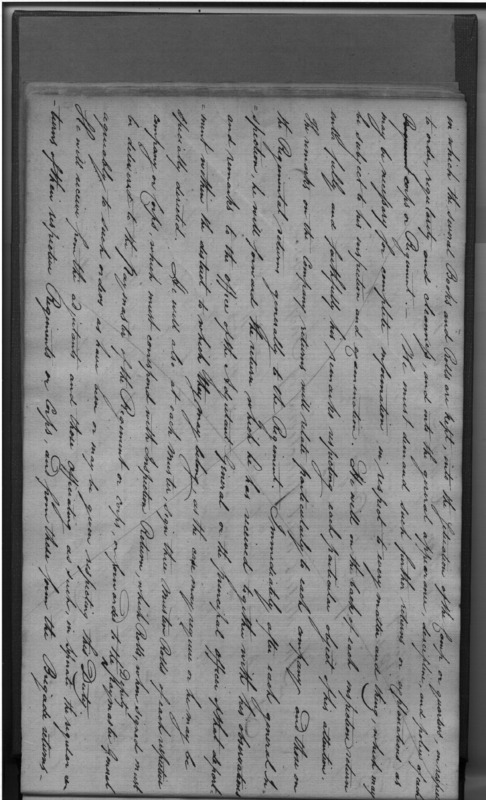 in which the several Books and Rolls are kept, into the situation of the Camp or quarters, in respect
to order, regularity and cleanliness, and into the general appearance, discipline, and police of each
corps or Regiment. — He must demand such further returns or explanations as
may be necessary for complete information in respect to every matter and thing, which may
be subject to his inspection and examination. He will on the back of each inspection return
note fully and faithfully his remarks respecting each particular object of his attention.
The remarks on the Company returns will relate particularly to each company, and those on
the Regimental returns generally to the Regiment. Immediately after each general in-
-spection, he will forward the returns which he has received together with his observations
and remarks to the office of the Adjutant General or the principal officer of that depart-
-ment within the district to which they may belong, as the case may require or he may be
specially directed. He will also at each muster, sign three Muster Rolls of each respective
company or Corps which must correspond with Inspection Returns, which Rolls, when signed must
be delivered to the Paymaster of the Regiment or corps, or forwarded to the Deputy Paymaster General
agreeably to such orders as have been or may be given respecting this Duty.
He will receive from the adjutants and those officiating as such, in Cypress the regular re-
-turns of their respective Regiments or Corps, and from these form the Brigade returns —